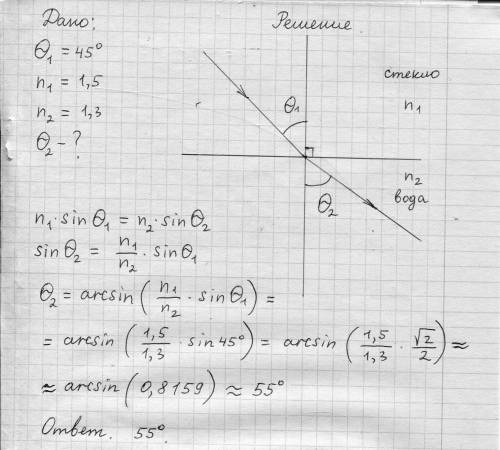 Дано:
Θ₁ = 45°
n₁ = 1,5
n₂ = 1,3
Θ₂ - ?
Решение
стекло
n₁
Θ₁
n₂
вода
Θ₂
n₁ · sin Θ₁ = n₂ · sin Θ₂
sin Θ₂ = n₁/n₂ · sin Θ₁
Θ₂ = arcsin (n₁/n₂ · sin Θ₁) =
= arcsin (1,5/1,3 · sin 45°) = arcsin (1,5/1,3 · √2/2) ≈
≈ arcsin (0,8159) ≈ 55°
Ответ. 55°.